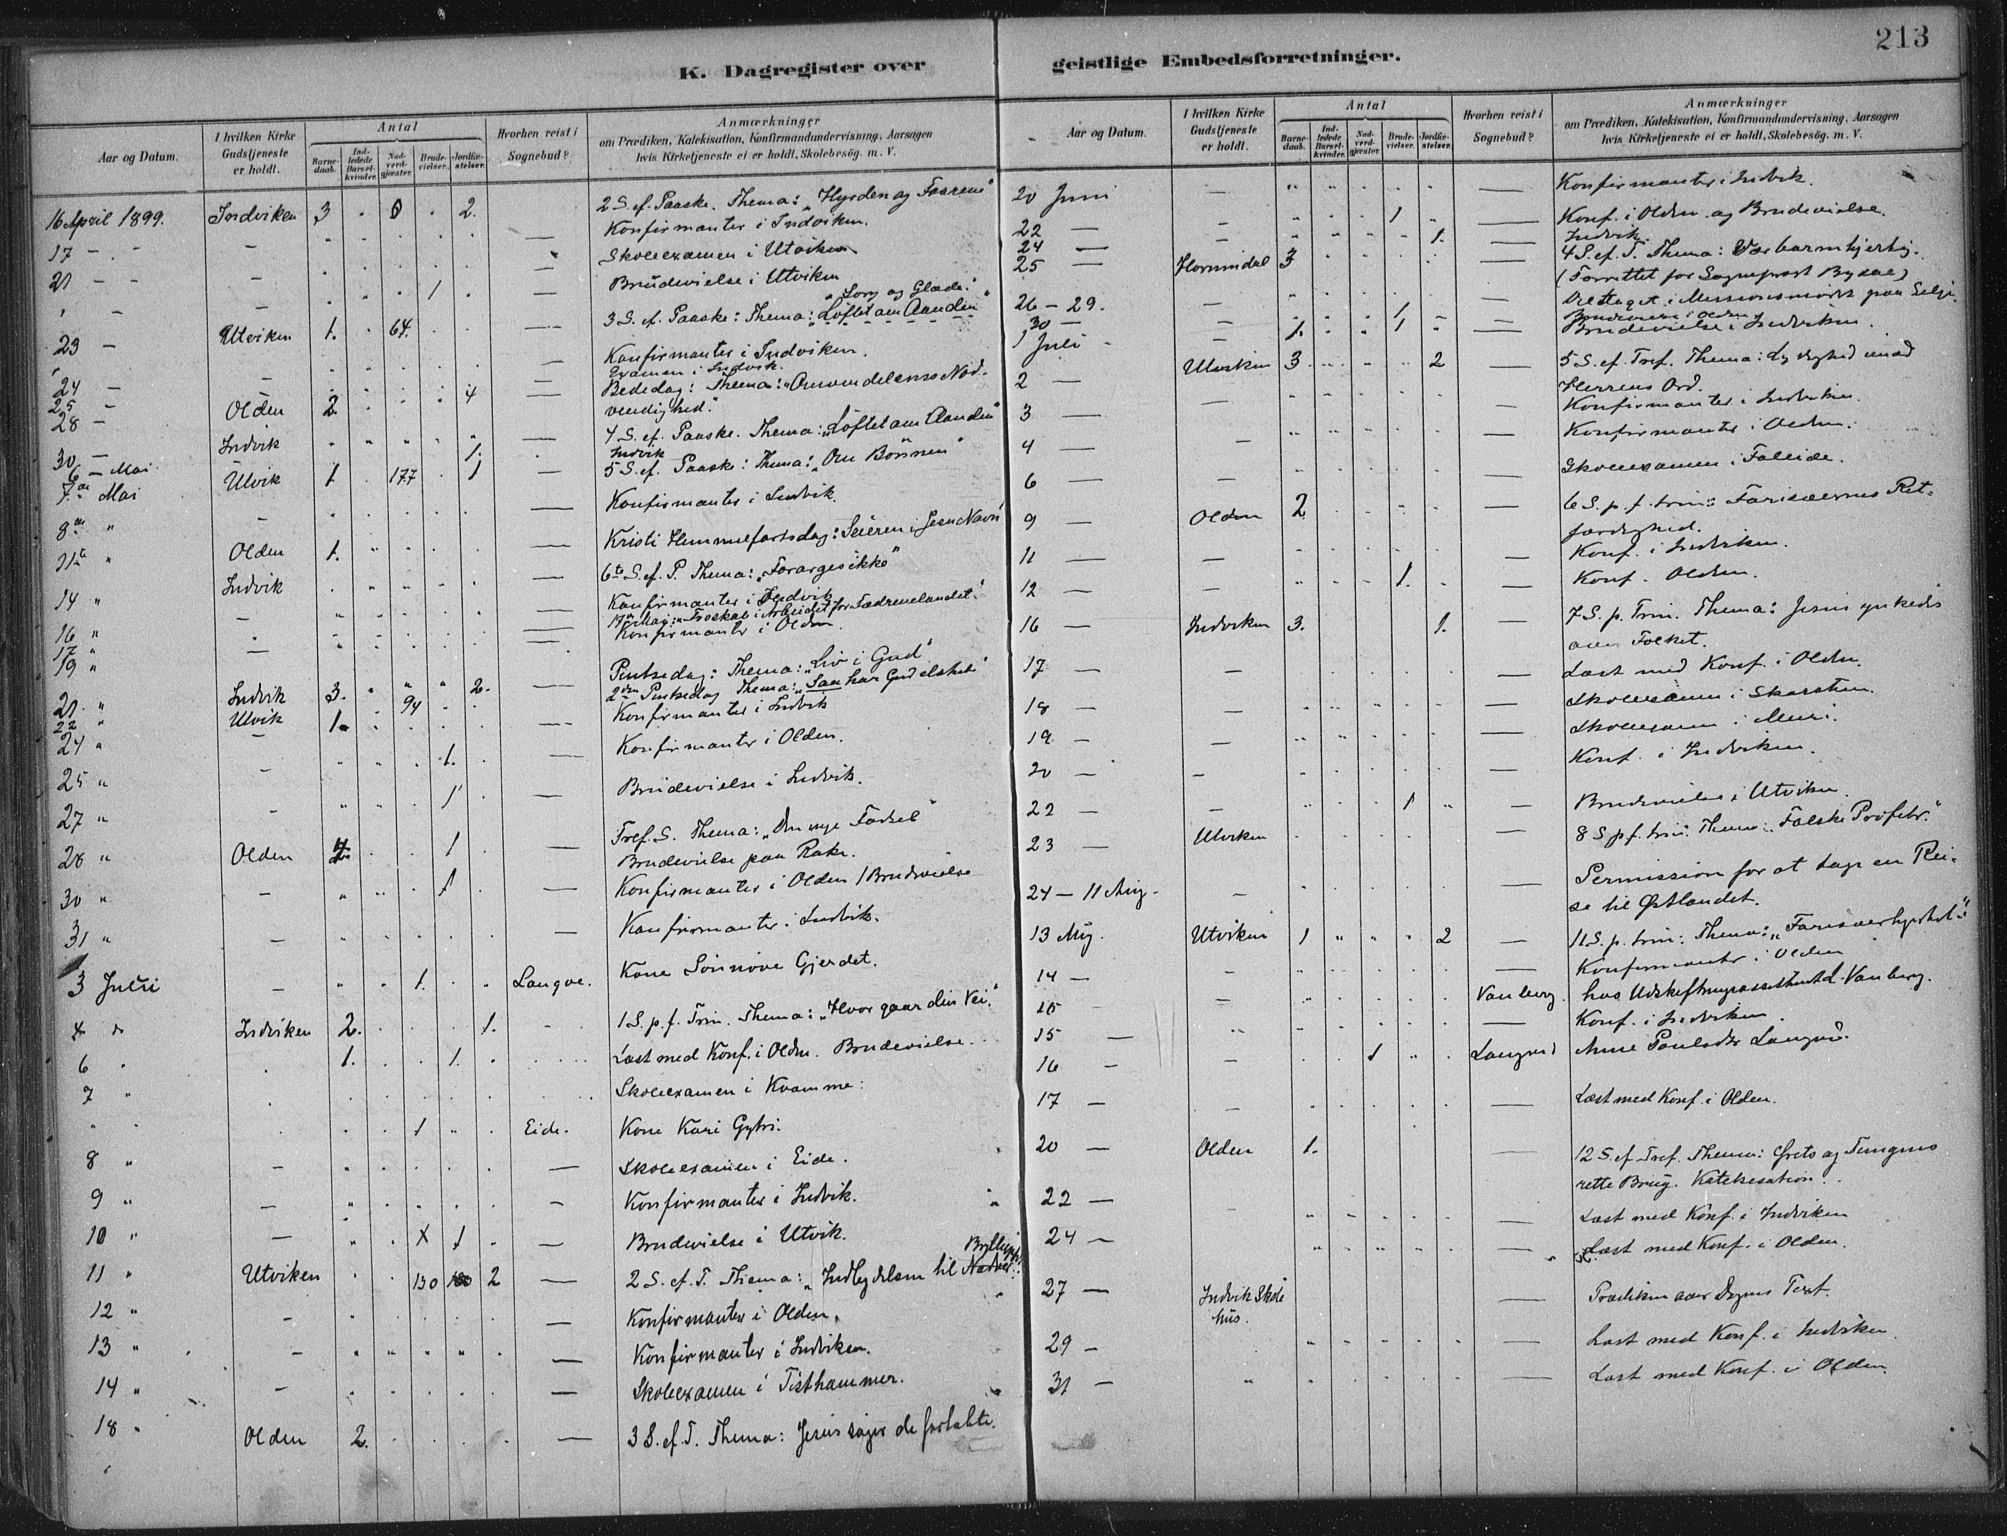 213
K. Dagregister over geistlige Embedsforretninger.
Aar og Datum. I hvilken Kirke Gudstjeneste er holdt. Antal Barnedaab. Indledede Barselkvinder. Nadverdgjæster. Brudevielser. Jordfæstelser. Hvorhen reist i Sognebud? Anmærkninger om Prædiken, Katekisation, Konfirmandundervisning, Aarsagen hvis Kirketjeneste ei er holdt, Skolebesøg. m. V.
16 April 1899. Indviken 3 0 2. 2 S. ef. Paaske. Thema: „Hyrden og Faarene"
17 - Konfirmanter i Indviken.
21 - Skoleexamen i Utviken
Brudevielse i Utviken 1
„Sorg og Glæde."
23 - Utviken 1. 64. 3 S. ef. Paaske: Thema: „Løftet om Aanden"
24 - Konfirmanter i Indviken.
25 - Examen i Indvik.
28 - Olden 2 4 Bededag: Thema: „Omvendelsens Nød-
vendighed."
30 - Indvik 4 S. ef. Paaske. Thema: „Løftet om Aanden"
6 - Mai 1. Indvik
7de Mai Utvik 1. 177 1 5 S. ef. Paaske: Thema: „Om Bönnen"
8de " Konfirmanter i Indvik.
Olden 1. Kristi Himmelfartsdag: Seieren i Jesu Navn
14 " Indvik 6te S. ef. P. Thema: „Forarges ikke"
16 " Konfirmanter i Indvik
17 " 17de Mai: „Troskab i Arbeidet for Fædrenelandet."
19 " Konfirmanter i Olden.
21 " Indvik 3. 2. Pintsedag: Thema: „Liv i Gud"
22 " Utvik 1. 94 2den Pintsedag Thema: „Saa har Gud elsket"
24 " Konfirmanter i Indvik
25 " 1. Konfirmanter i Olden.
27 " 1 Brudevielse i Indvik.
28 " Olden 1 Tref. S. Thema: „Den nye Fødsel"
Brudevielse paa Rake.
30 " 1 Konfirmanter i Olden 1 Brudevielse
31 " Konfirmanter i Indvik.
3 Juni 1. Langve. Kone Sönnöve Gjerdet.
4 " Indviken 2. 1. 1 S. p. f. Trin. Thema: „Hvor gaar din Vei."
6 " 1. 1. Læst med Konf. i Olden. Brudevielse.
7 " Skoleexamen i Kvamme.
" " 1 Eide. Kone Kari Gytri.
8 " Skoleexamen i Eide.
9 " Konfirmanter i Indvik.
10 " X 1 Brudevielse i Utvik.
Bryllup
11 " Utviken 130 2 2 S. ef. T. Thema: „Indbydelsen til Nadver."
12 " Konfirmanter i Olden.
13 " Konfirmanter i Indviken.
14 " Skoleexamen i Tisthammer.
18 " Olden 2. 3 S. ef. T. Thema: Jesus søger de fortabte.
Aar og Datum. I hvilken Kirke Gudstjeneste er holdt. Antal Barnedaab. Indledede Barselkvinder. Nadverdgjæster. Brudevielser. Jordfæstelser. Hvorhen reist i Sognebud? Anmærkninger om Prædiken, Katekisation, Konfirmandundervisning, Aarsagen hvis Kirketjeneste ei er holdt, Skolebesøg. m. V.
20 Juni Konfirmanter i Indvik.
22 - 1 Konf. i Olden og Brudevielse.
24 - 1. Indvik.
25 - Hornindal 3 4 S. ef. T. Thema: Vær barmhjertig.
(Forrettet for Sogneprest
26 - 29. Deltaget i Missionsmødet paa Selje.
30 - 1 Brudevielse i Olden
1 Juli 1. 1 Brudevielse i Indviken.
2 - Utviken 3 2 5 S. ef. Tref. Thema: Lydighed mod
Herrens Ord.
3 - Konfirmanter i Indviken.
4 - Konfirmanter i Olden.
6 - Skoleexamen i Faleide.
9 - Olden 2 6 S. p. f. trin: Farisæernes Ret-
færdighed.
11 - Konf. i Indviken.
12 - 1. Konf. Olden.
16 - Indviken 3. 1. 7 S. p. Trin. Thema: Jesus ynkedes
over Folket.
17 - Læst med Konf. i Olden.
18 - Skoleexamen i Skarsten.
19 - Skoleexam i Muri.
20 - Konf. i Indviken.
22 - 1 Brudevielse i Utviken.
23 - Utviken 8 S. p. f. trin: Thema: „Falske Profeter."
24 - 11 Aug. Permission for at tage en Rei-
se til Østlandet.
13 Aug. Utviken 1 2 11 S. p. trin: Thema: „Farisæerhyckel"
14 - Konfirmanter i Olden
15 - Vanberg. hos Udskiftningsassistent d. Vanberg.
15 - Konf. i Indviken.
16 - 1 Anne Paulsdtr
17 - Læst med Konf. i Olden.
20 - Olden 1. 12 S. ef Tref. Thema: Ørets og Tungens
rette Brug. Katekisation.
22 - Læst med Konf. i Indviken
24 - Læst med Konf. i Olden.
27 - Indvik Skole Prædiken over Dagens Text.
hus.
29 - Læst med Konf. i Indviken.
31 - Læst med Konf. i Olden.